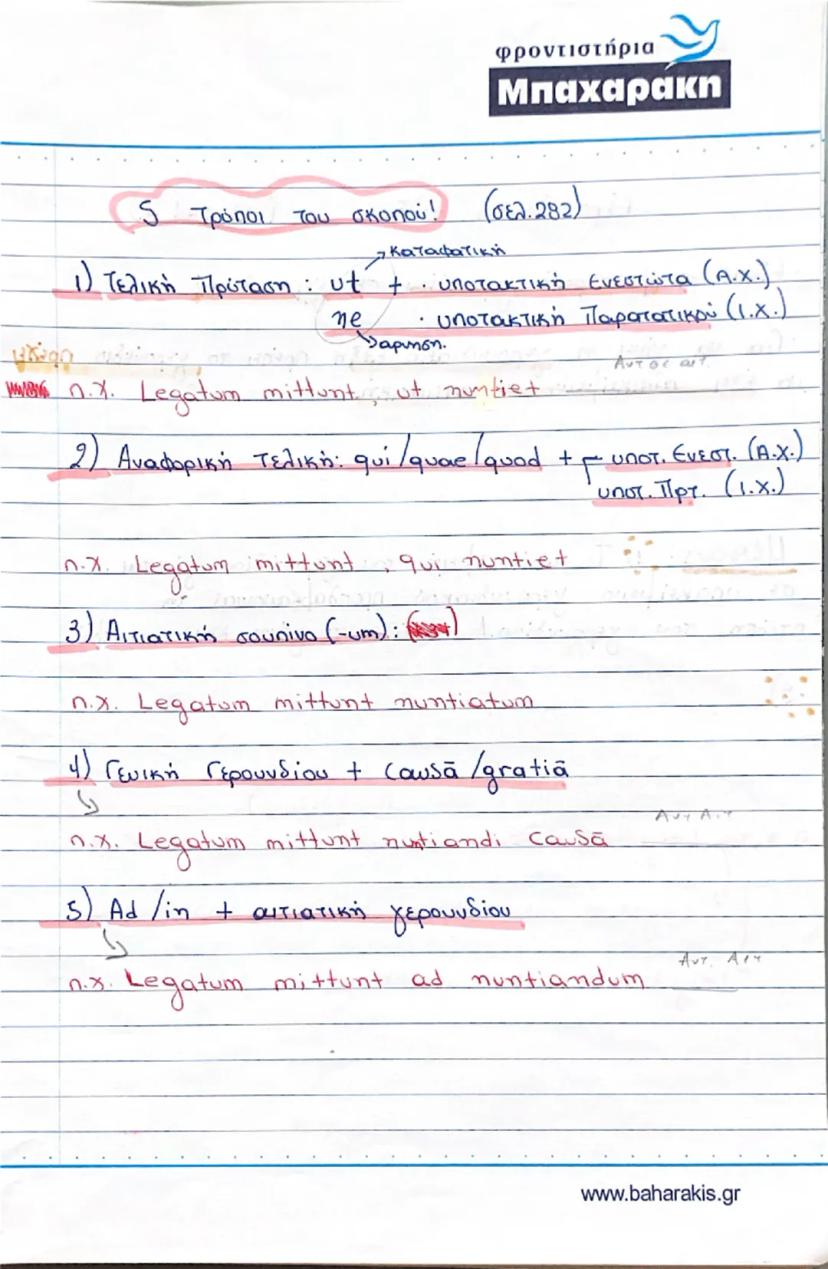 φροντιστήρια
Μπαχαράκη
5 Τρόποι του σκοπού! (σελ.282)
καταφατική
1) Τελική Πρόταση: ut + · υποτακτική Ενεστώτα (Α.Χ.)
ne · υποτακτική Παρατατικού (Ι.Χ.)
άρνηση.
π.χ. Legatum mittunt, ut nuntiet
2) Αναφορική Τελική: qui/quae/quod + υποτ. Ενεστ. (Α.Χ.)
υποτ. Πρτ. (Ι.Χ.)
π.χ. Legatum mittunt, qui nuntiet
3) Αιτιατική σουπίνο (-um):
π.χ. Legatum mittunt nuntiatum
4) Γενική Γερουνδίου + causā/gratiā
π.χ. Legatum mittunt nuntiandi causā
5) Ad/in + αιτιατική γερουνδίου
Αντ. Αιτ
π.χ. Legatum mittunt ad nuntiandum
www.baharakis.gr